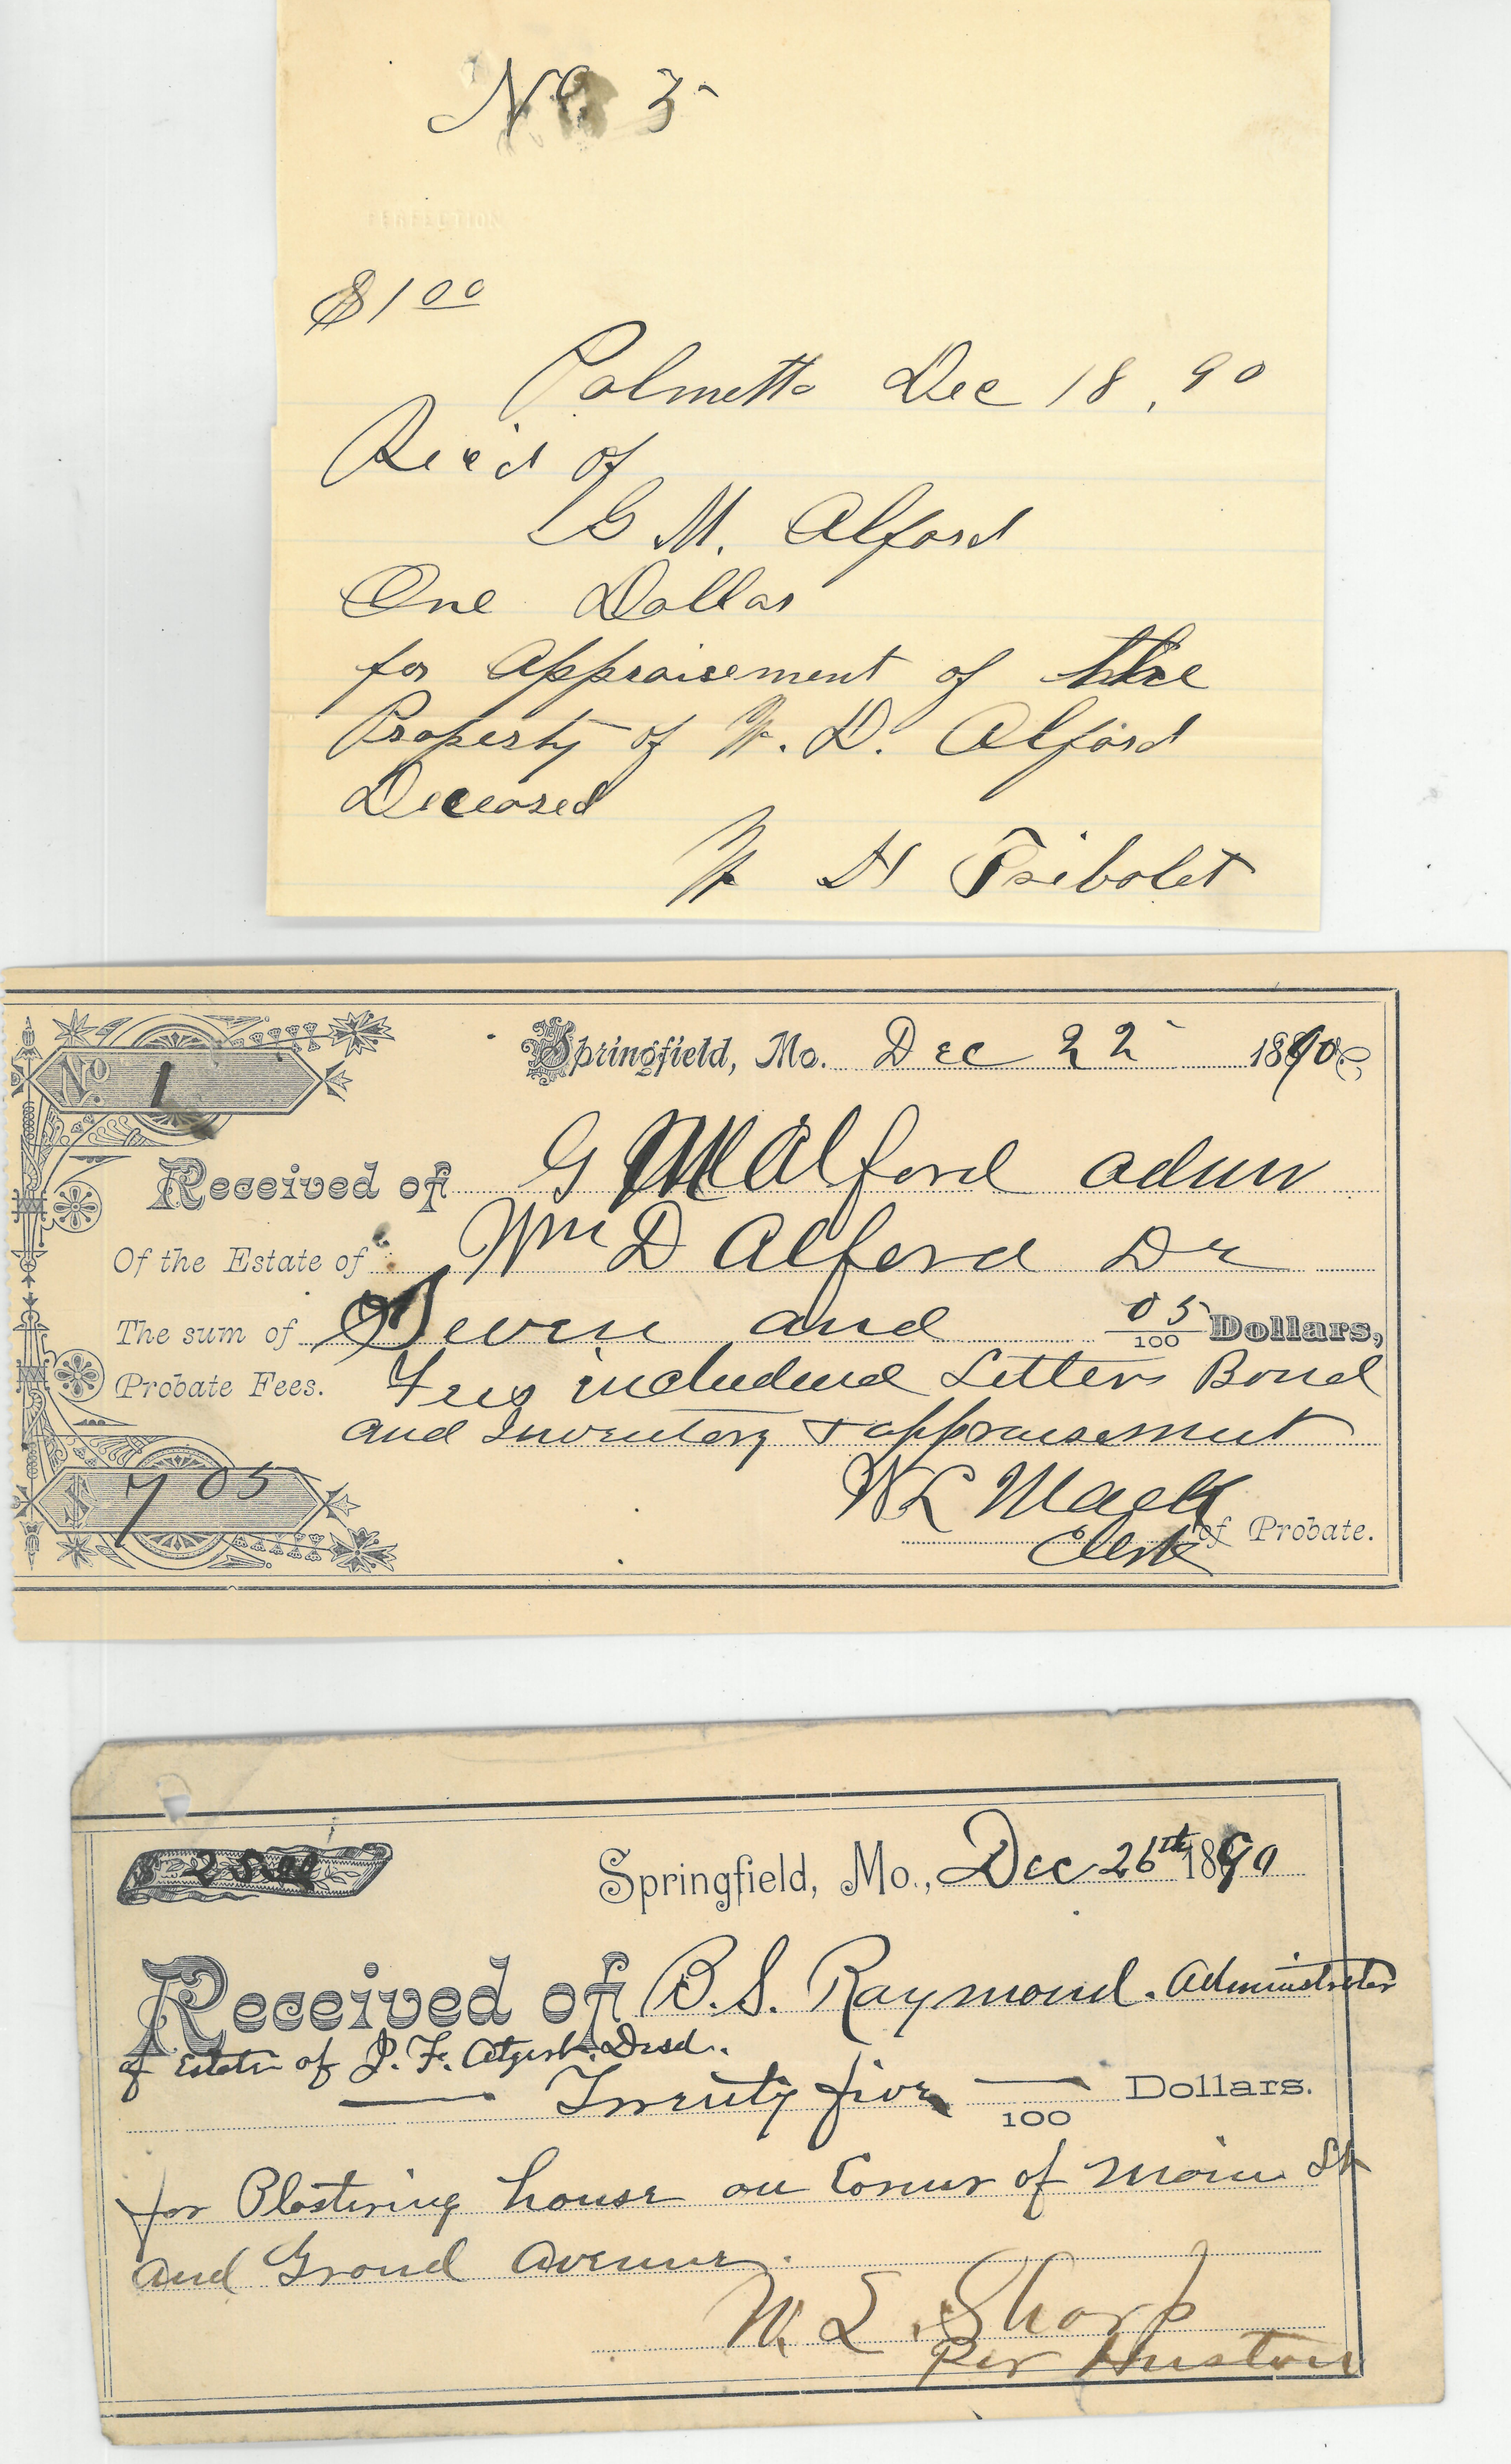 No 3
PERFECTION
$1 00
Palmetto Dec 18, 90
Rec'd of
G M. Alford
One Dollar
for Appraisement of the
Property of W. D. Alford
Deceased
W H Tribolet
No 1
Springfield, Mo. Dec 22 1890
Received of G M Alford admr
Of the Estate of Wm D Alford Dr
The sum of Seven and 05/100 Dollars,
Probate Fees. Fees included Letters Bond
and Inventory & appraisement
$ 7 05
W L Mack
Clerk of Probate.
$ 25.00
Springfield, Mo., Dec 26th 1890
Received of B. S. Raymond. Administrator
of Estate of J. F. Desd.
Twenty five /100 Dollars.
for Plastering house on Corner of Main St
and Grand Avenue.
W. L. Sharp
Per Huston